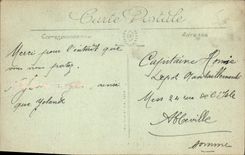 Carte Postale
Correspondance
Adresse
Merci pour l'intérêt que
vous me portez
ainsi
que Yolande
Capitaine
Depot
Mess 24 rue de l'Isle
Abbeville
Somme